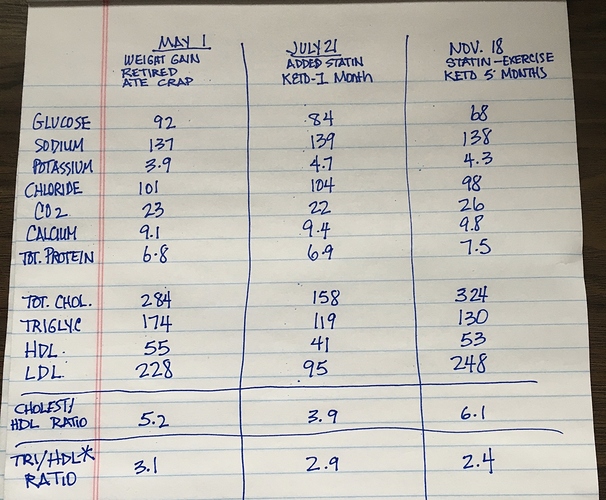 MAY 1 JULY 21 NOV. 18
WEIGHT GAIN ADDED STATIN STATIN-EXERCISE
RETIRED KETO-1 MONTH KETO 5 MONTHS
ATE CRAP
GLUCOSE 92 84 68
SODIUM 137 139 138
POTASSIUM 3.9 4.7 4.3
CHLORIDE 101 104 98
CO2 23 22 26
CALCIUM 9.1 9.4 9.8
TOT. PROTEIN 6.8 6.9 7.5
TOT. CHOL. 284 158 324
TRIGLYC 174 119 130
HDL. 55 41 53
LDL. 228 95 248
CHOLEST/
HDL RATIO 5.2 3.9 6.1
TRI/HDL*
RATIO 3.1 2.9 2.4